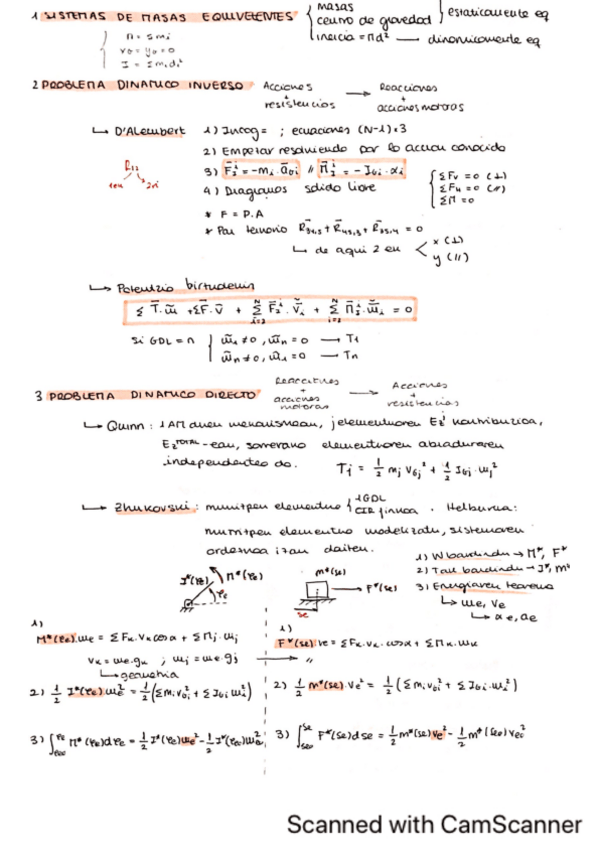 1 SISTEMAS DE MASAS EQUIVELENTES { masas
centro de gravedad } estaticamente eq
inercia = Md² — dinamicamente eq
M = Σmi
xG = yG = 0
I = Σmidi²
2 PROBLEMA DINAMICO INVERSO Acciones + resistencias → Reacciones + acciones motoras
↳ D'Alembert 1) Incog = ; ecuaciones (N-1)·3
2) Empezar resolviendo por la accion conocida
3) F̄ⁱ = -mi·āGi // M̄ⁱ = -IGi·αi
4) Diagramas solido libre
{ ΣFV = 0 (⊥)
ΣFH = 0 (//)
ΣM = 0
* F = P.A
* Par ternario + + = 0
↳ de aqui 2 eu < x (⊥)
y (//)
↳ Potentzia birtualen
Σ T̄·ω̄ + ΣF̄·v̄ + Σ F̄ⁱ·v̄i + Σ M̄ⁱ·ω̄i = 0
Si GDL = n { ω̄1 ≠ 0, ω̄n = 0 → T1
ω̄n ≠ 0, ω̄1 = 0 → Tn
3 PROBLEMA DINAMICO DIRECTO Reacciones + acciones motoras → Acciones + resistencias
↳ Quinn: 1 AM duen mekanismoan, j elementuaren Ez kontribuzioa,
Ez TOTAL-ean, sarrerako elementuaren abiaduraren
independentea da. Tj = 1/2 mj vGj² + 1/2 IGj·ωj²
↳ Zhukovski: murriztpen elementua { 1GDL
CIR finkoa. Helburua:
murriztpen elementua modelizatu, sistemaren
ordezkoa izan daiten.
1) W → M*, F*
2) → I*, m*
3) Energiaren teorema
↳ ωe, ve
↳ αe, ae
I*(φe) M*(φe) φe
m*(se) F*(se) se
1)
M*(φe)·ωe = ΣFk·vk cosα + ΣMj·ωj
vk = ωe·gk ; ωj = ωe·gj
↳ geometria
1)
F*(se)·ve = ΣFk·vk·cosα + ΣMk·ωk
→ //
2) 1/2 I*(φe)·ωe² = 1/2 (Σmi·vGi² + ΣIGi·ωi²)
2) 1/2 m*(se)·ve² = 1/2 (Σmi vGi² + ΣIGi·ωi²)
3) ∫ M*(φe)dφe = 1/2 I*(φe)ωe² - 1/2 I*(φeo)ωeo²
3) ∫ F*(se)dse = 1/2 m*(se)ve² - 1/2 m*(seo)veo²
Scanned with CamScanner